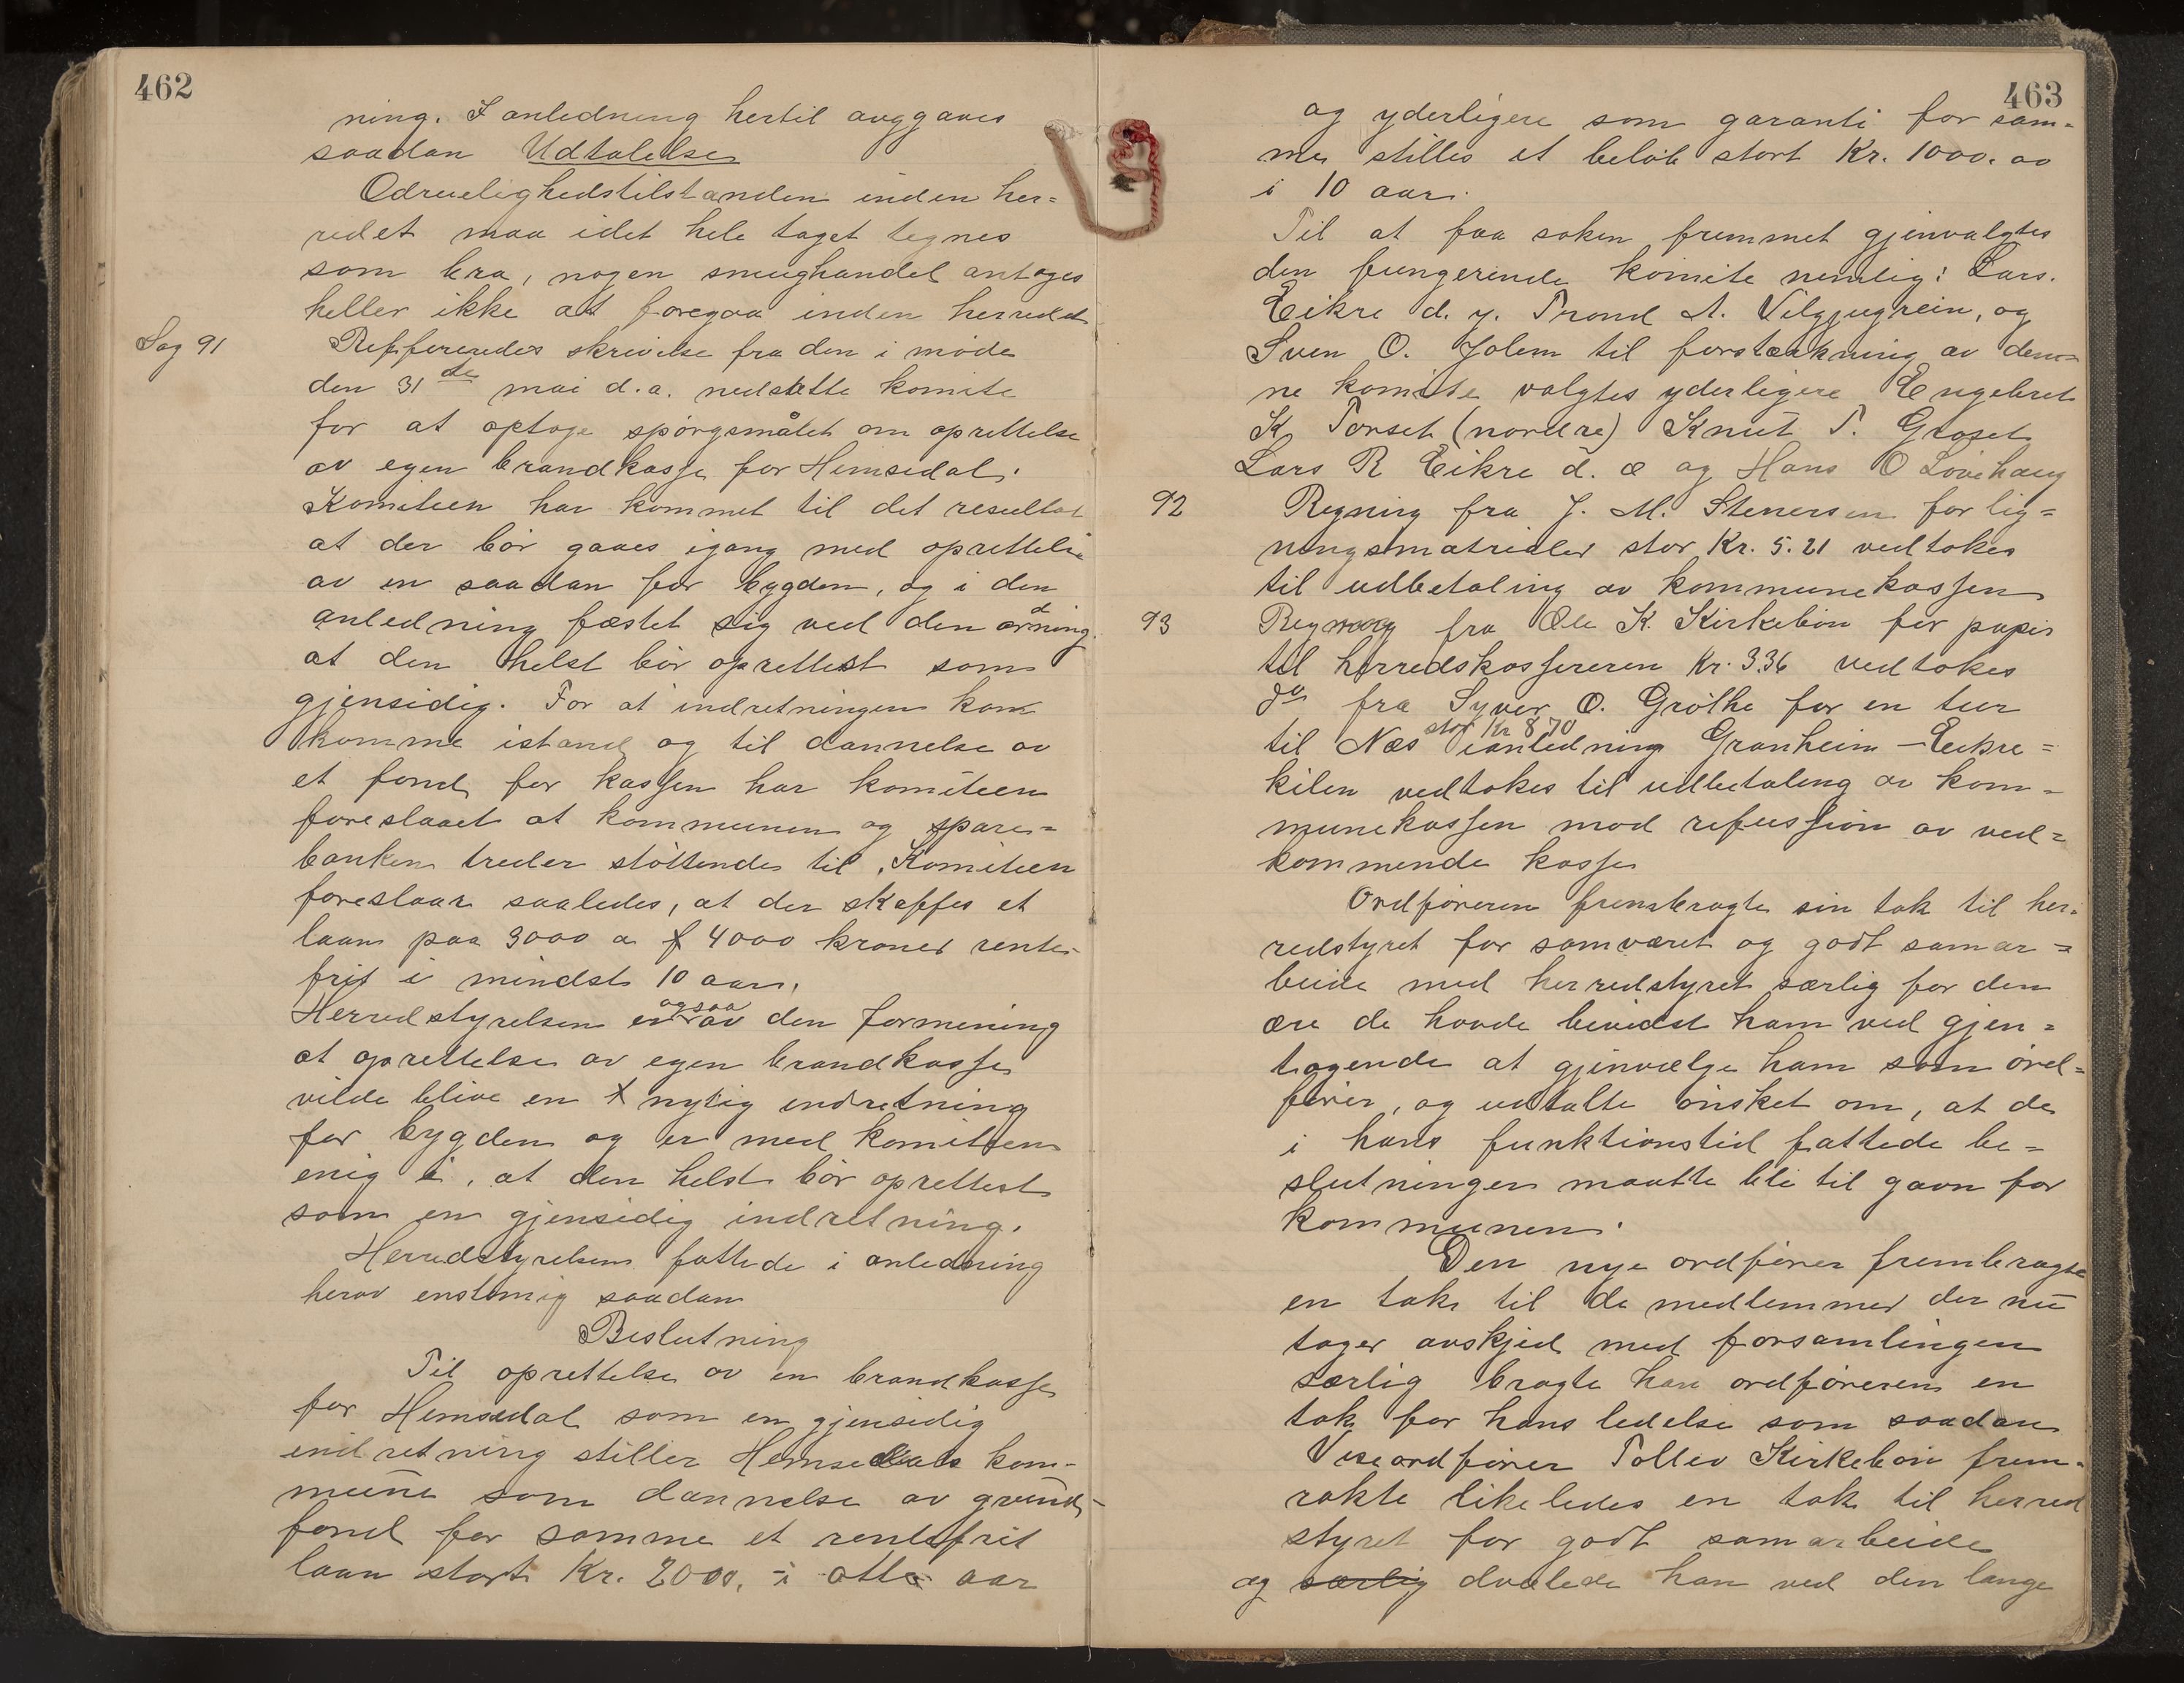 462
ning. I anledning hertil avggaves
saadan Udtalelse
Ædruelighedstilstanden inden her=
redet maa idet hele taget tegnes
som bra, nogen smughandel antages
heller ikke at foregaa inden herredet
Sag 91
Refferedes skrivelse fra den i møde
den 31te mai d.a. nedsatte komite
for at optage spørgsmålet om oprettelse
av egen brandkasse for Hemsedal.
Komiteen har kommet til det resultat
at der bør gaaes igang med oprettelse
av en saadan for bygden, og i den
anledning fæstet sig ved den ordning
at den helst bør oprettest som
gjensidig. For at indretningen kan
komme istand og til dannelse av
et fond for kassen har komiteen
foreslaaet at kommunen og spare=
banken træder støttende til. Komiteen
foreslaar saaledes, at der skaffes et
laan paa 3000 a 4000 kroner rente-
frit i mindst 10 aar.
Herredstyrelsen er ogsaa av den formening
at oprettelse av egen brandkasse
vilde blive en nytig indretning
for bygden og er med komiteen
enig i, at den helst bør oprettest
som en gjensidig indretning.
Herredstyrelsen fattede i anledning
herav enstemig saadan
Beslutning
Til oprettelse av en brandkasse
for Hemsedal som en gjensidig
indretning stiller Hemsedals kom-
mune som dannelse av grund-
fond for samme et rentefrit
laan stort Kr. 2000. i otte aar
463
og yderligere som garanti for sam=
me stilles et beløb stort Kr. 1000.00
i 10 aar.
Til at faa saken fremmet gjenvalgtes
den fungerende komite nemlig: Lars.
Eikre d. y. Trond A. Ulgjugrein, og
Sven O. Jolem til forstærkning av den=
ne komite valgtes yderligere Engebret
K. Torset (nordre) Knut T. Grøset
Lars R Eikre d. æ og Hans O Løvehaug
92
Regning fra J. M. Stenersen for lig=
ningsmatrialer stor Kr. 5.21 vedtokes
til udbetaling av kommunekassen
93
Regning fra Ole K. Kirkebøn for papir
til herredskassereren Kr. 3.36 vedtokes
do fra Syver O. Grøthe for en tur
til Næs stor Kr 8.70 ianledning Granheim – Eikre=
kilen vedtokes til udbetaling av kom-
munekassen mod refussion av ved=
kommende kasse
Ordføreren frembragte sin tak til her=
redstyret for samværet og godt samar=
beide med herredstyret særlig for den
ære de havde bevidst ham ved gjen=
tagende at gjenvælge ham som ord=
fører, og udtalte ønsket om, at de
i hans funktionstid fattede be=
slutninger maatte bli til gavn for
kommunen.
Den nye ordfører frembragte
en tak til de medlemmer der nu
tager avskjed med forsamlingen
særlig bragte han ordføreren en
tak for hans ledelse som saadan
Viseordfører Tollev Kirkebøn frem-
rakte likeledes en tak til herred
styret for godt samarbeide
og særlig dvælede han ved den lange